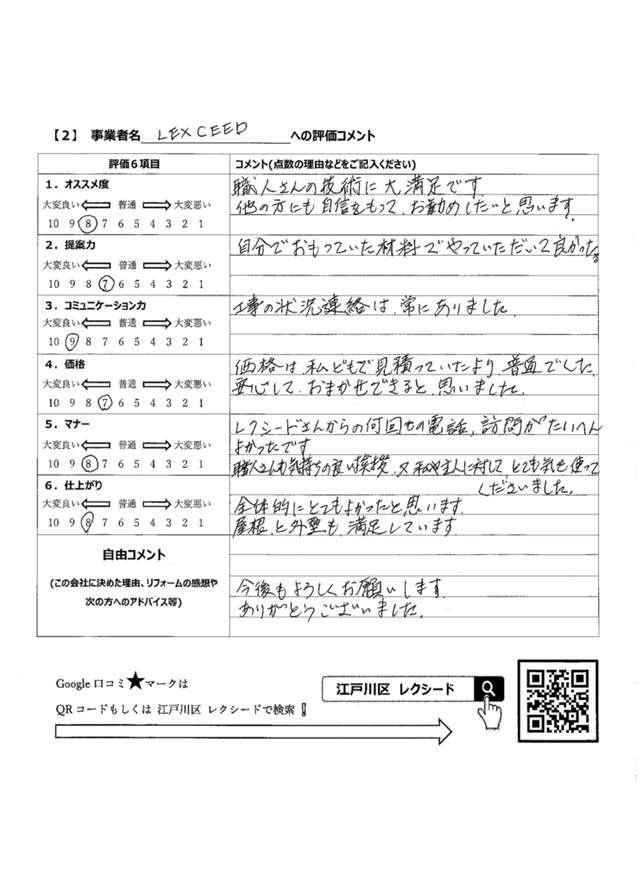 【2】 事業者名 LEXCEED への評価コメント
評価6項目 コメント(点数の理由などをご記入ください)
1．オススメ度
大変良い 普通 大変悪い
10 9 8 7 6 5 4 3 2 1
職人さんの技術に大満足です
他の方にも自信をもって、お勧めしたいと思います。
2．提案力
大変良い 普通 大変悪い
10 9 8 7 6 5 4 3 2 1
自分でおもっていた材料でやっていただいて良かった。
3．コミュニケーション力
大変良い 普通 大変悪い
10 9 8 7 6 5 4 3 2 1
工事の状況連絡は、常にありました。
4．価格
大変良い 普通 大変悪い
10 9 8 7 6 5 4 3 2 1
価格は、私どもで見積っていたより、普通でした。
安心して、おまかせできると、思いました。
5．マナー
大変良い 普通 大変悪い
10 9 8 7 6 5 4 3 2 1
レクシードさんからの何回もの電話、訪問がたいへん
よかったです
職人さんも気持ちの良い挨拶、又私や主人に対して、とても気を使って
くださいました。
6．仕上がり
大変良い 普通 大変悪い
10 9 8 7 6 5 4 3 2 1
全体的にとてもよかったと思います。
屋根、と外壁も、満足しています
自由コメント
(この会社に決めた理由、リフォームの感想や
次の方へのアドバイス等)
今後もよろしくお願いします。
ありがとうございました。
Google 口コミ★マークは
QRコードもしくは 江戸川区 レクシードで検索！
江戸川区 レクシード